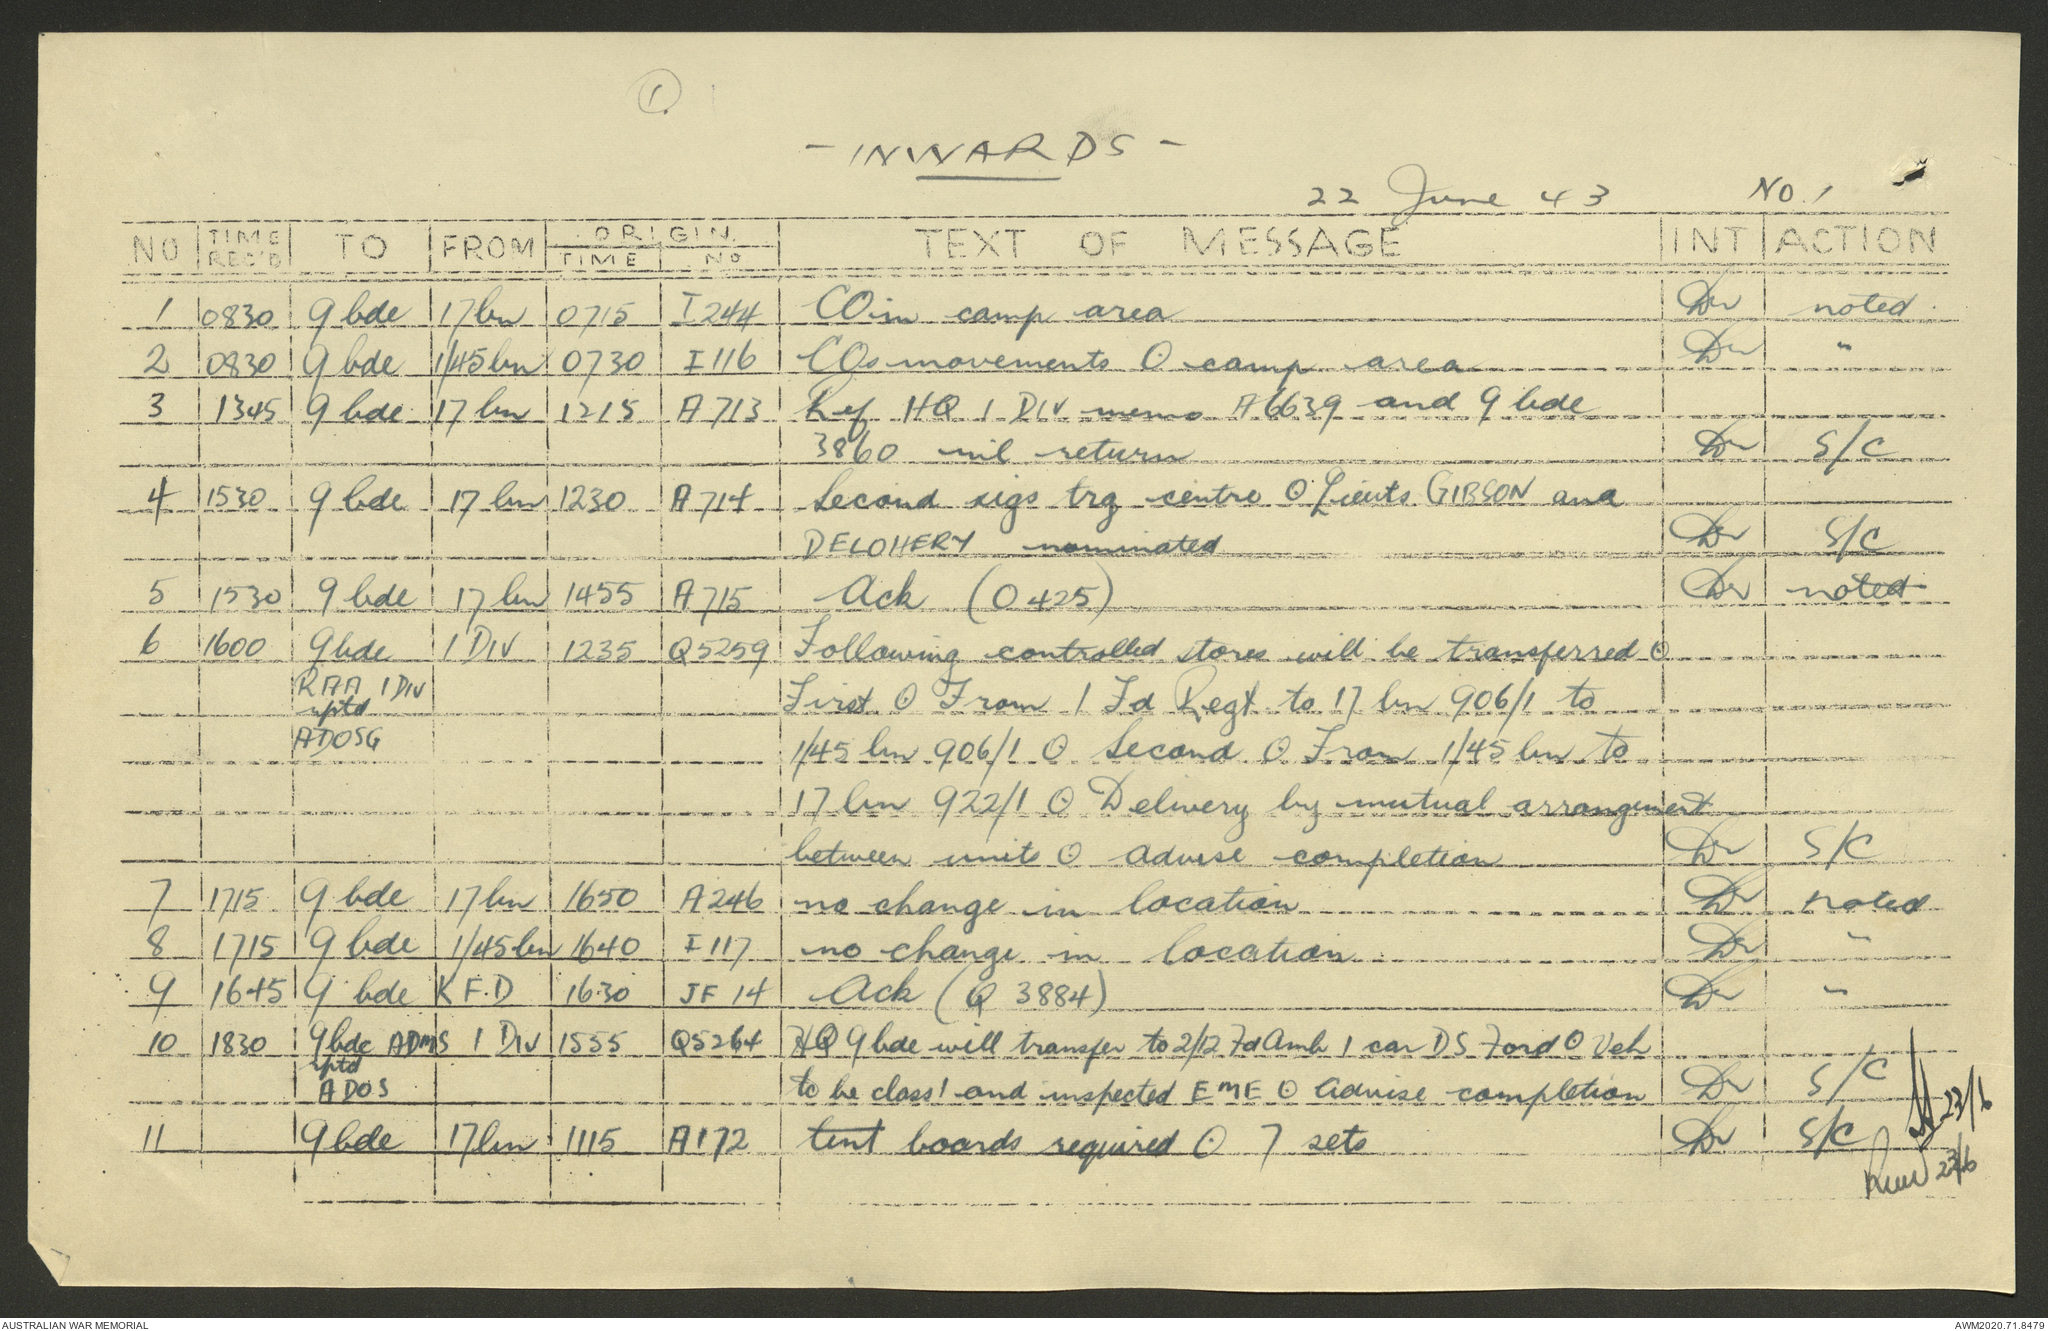 1.
- INWARDS -
22 June 43 No. 1
NO TIME REC'D TO FROM ORIGIN. TIME NO TEXT OF MESSAGE INT ACTION
1 0830 9 bde 17 bn 0715 I 244 CO in camp area Dr noted
2 0830 9 bde 1/45 bn 0730 I 116 COs movements ʘ camp area Dr "
3 1345 9 bde 17 bn 1215 A 713 Ref HQ 1 DIV memo A6639 and 9 bde
3860 nil return Dr S/C
4 1530 9 bde 17 bn 1230 A 714 Second sigs trg centre ʘ Lieuts GIBSON and
DELOHERY nominated Dr S/C
5 1530 9 bde 17 bn 1455 A 715 Ack (O 425) Dr noted
6 1600 9 bde 1 DIV 1235 Q5259 Following controlled stores will be transferred ʘ
RAA 1 Div
rptd
ADOSG
First ʘ From 1 Fd Regt to 17 bn 906/1 to
1/45 bn 906/1 ʘ Second ʘ From 1/45 bn to
17 bn 922/1 ʘ Delivery by mutual arrangement
between units ʘ advise completion Dr S/C
7 1715 9 bde 17 bn 1650 A 246 no change in location Dr noted
8 1715 9 bde 1/45 bn 1640 I 117 no change in location Dr "
9 1645 9 bde K.F.D 1630 JF 14 Ack (Q 3884) Dr "
10 1830 9 bde ADMS 1 Div 1555 Q5264 HQ 9 bde will transfer to 2/12 Fd Amb 1 car DS Ford ʘ Veh
rptd
ADOS
to be class! and inspected EME ʘ advise completion Dr S/C
23/6
11 9 bde 17 bn 1115 A172 tent boards required ʘ 7 sets Dr S/C
23/6
AUSTRALIAN WAR MEMORIAL AWM2020.71.8479